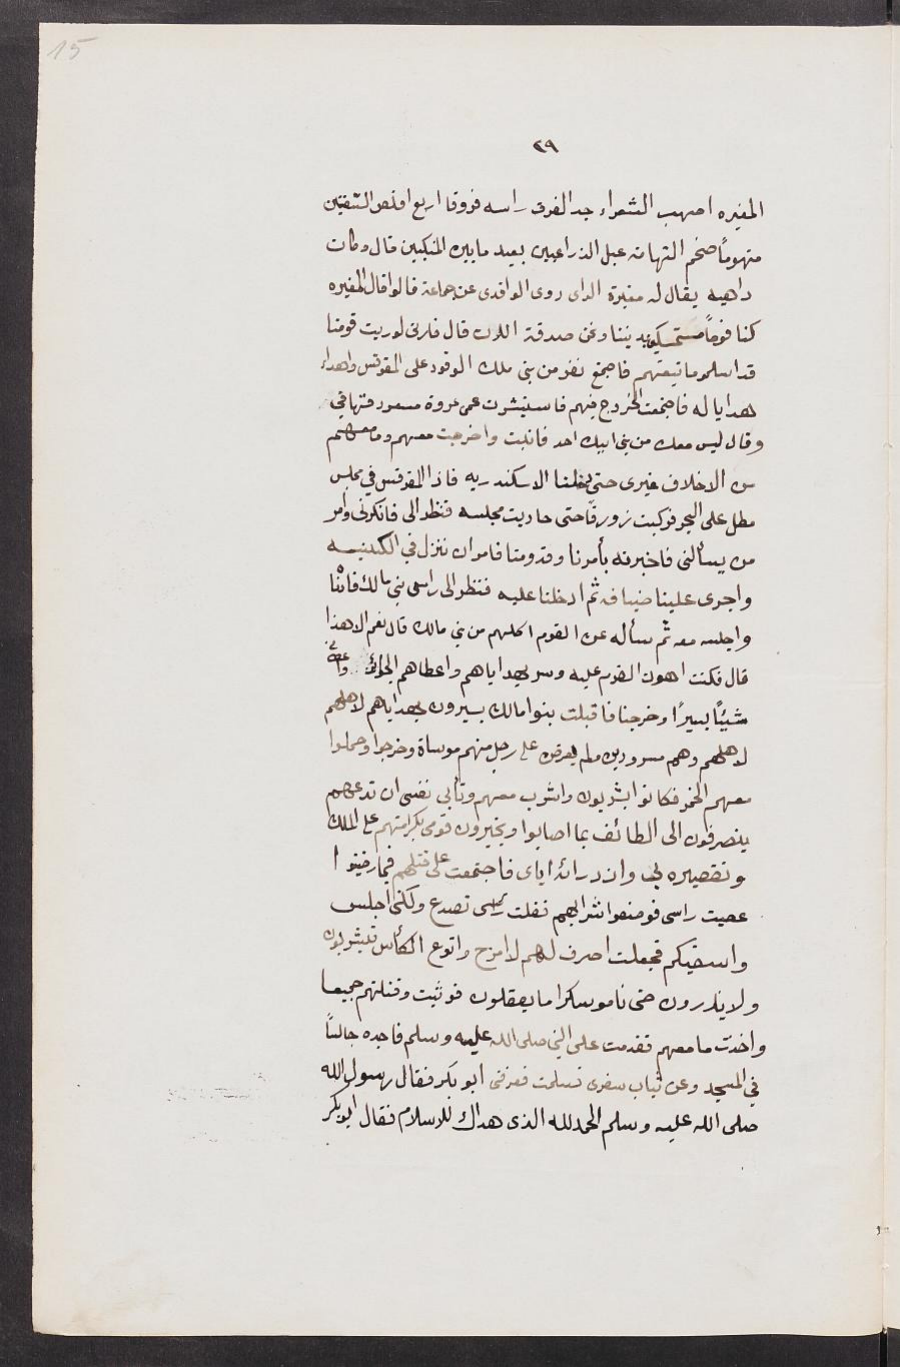 15
٢٩
المغيره اصهب الشعراء جد الفرق راسه فروقا اربع اقلص الشفتين
متهوماً ضخم التهامه عبل الذراعين بعيد ما بين المنكبين قال وكات
داهيه يقال له مغيرة الراى روى الواقدى عن جماعة قالوا قال المغيره
كنا قوماً متمسكين بديننا ونحن صدقة اللات قال فارنى لو رايت قومنا
قد اسلمو ما تبعتهم فاجمع نفر من بنى ملك الوفود على المقوقس واهداء
هدايا له فاجمعت الخروج فيهم فاستشرت عمى عروة مسعود فنهانى
وقال ليس معك من بنى ابيك احد فابيت واخرجت معهم وما معهم
من الاخلاف غيرى حتى دخلنا الاسكندريه فاذا المقوقس في مجلس
مطل على البحر فركبت زورقاً حتى حاديت مجلسه فنظر الى فانكرنى وامر
من يسألنى فاخبرته بأمرنا وقدومنا فامر ان ننزل في الكنيسه
واجرى علينا ضيافه ثم ادخلنا عليه فنظر الى راس بنى مالك فادنا
واجلسه معه ثم سأله عن القوم اكلهم من بنى مالك قال نعم الا هذا
قال فكنت اهون القوم عليه وسر بهداياهم واعطاهم الجوائز
شيئاً يسيرًا وخرجنا فاقبلت بنوا مالك يسيرون بهداياهم لاهلهم
لاهلهم وهم مسرورين ولم يعرض على رجل منهم موساة وخرجوا وحملوا
معهم الخمر فكانوا يشربون واشرب معهم وتأبى نفسى ان تدعهم
ينصرفون الى الطائف بما اصابوا ويخبرون قومى بكرامتهم على الملك
وتقصيره بى وازدرائه اياى فاجتمعت على قتلهم فتمارضتوا
عصبت راسى فوضعوا شرابهم فقلت راسى تصدع ولكنى اجلس
واسقيكم فجعلت اصرف لهم لا امزح واتوع الكأس فيشربون
ولا يدرون حتى ناموا سكرا ما يعقلون فوثبت وقتلتهم جميعا
واخدت ما معهم فقدمت على النبى صلى الله عليه وسلم فاجده جالساً
في المسجد وعن ثياب سفرى فسلمت فعرفنى ابو بكر فقال رسول الله
صلى الله عليه وسلم الحمد لله الذى هداك للاسلام فقال ابو بكر